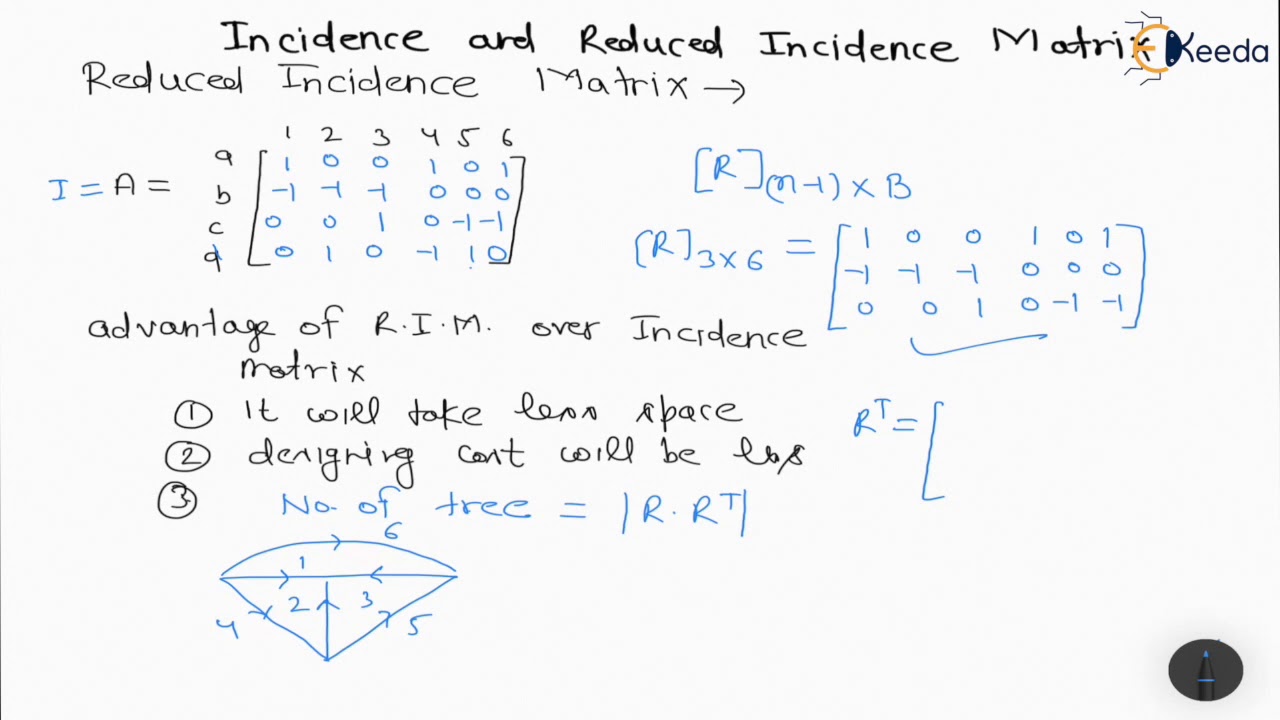 Incidence and Reduced Incidence Matrix
Keeda
Reduced Incidence Matrix →
1 2 3 4 5 6
I = A =
a 1 0 0 1 0 1
b -1 -1 -1 0 0 0
c 0 0 1 0 -1 -1
d 0 1 0 -1 1 0
[R](n-1) × B
[R]3×6 =
1 0 0 1 0 1
-1 -1 -1 0 0 0
0 0 1 0 -1 -1
advantage of R.I.M. over Incidence
matrix
① It will take less space
② designing cost will be less
③ No. of tree = |R.Rᵀ|
Rᵀ = [
6
1
2 3
4 5